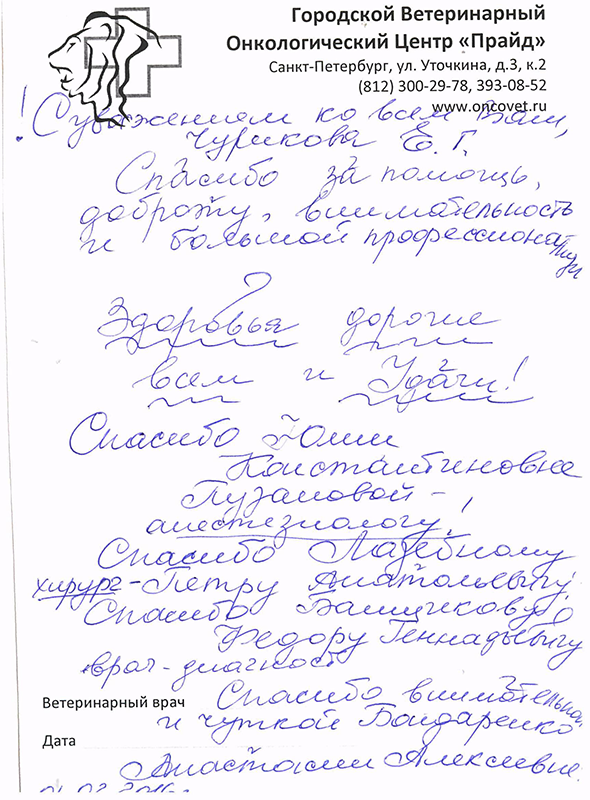 Городской Ветеринарный
Онкологический Центр «Прайд»
Санкт-Петербург, ул. Уточкина, д.3, к.2
(812) 300-29-78, 393-08-52
www.oncovet.ru
! С уважением ко всем Вам,
Чурикова Е. Г.
Спасибо за помощь,
доброту, внимательность
и большой профессионализм
Здоровья дорогие
всем и Удачи!
Спасибо Юлии
Константиновне
Пузановой -
анестезиологу!
Спасибо Лазебному
хирург - Петру Анатольевичу
Спасибо
Федору Геннадьевичу
врач - диагност
Ветеринарный врач
Спасибо внимательной
и чуткой Бондаренко
Дата
Анастасии Алексеевне.